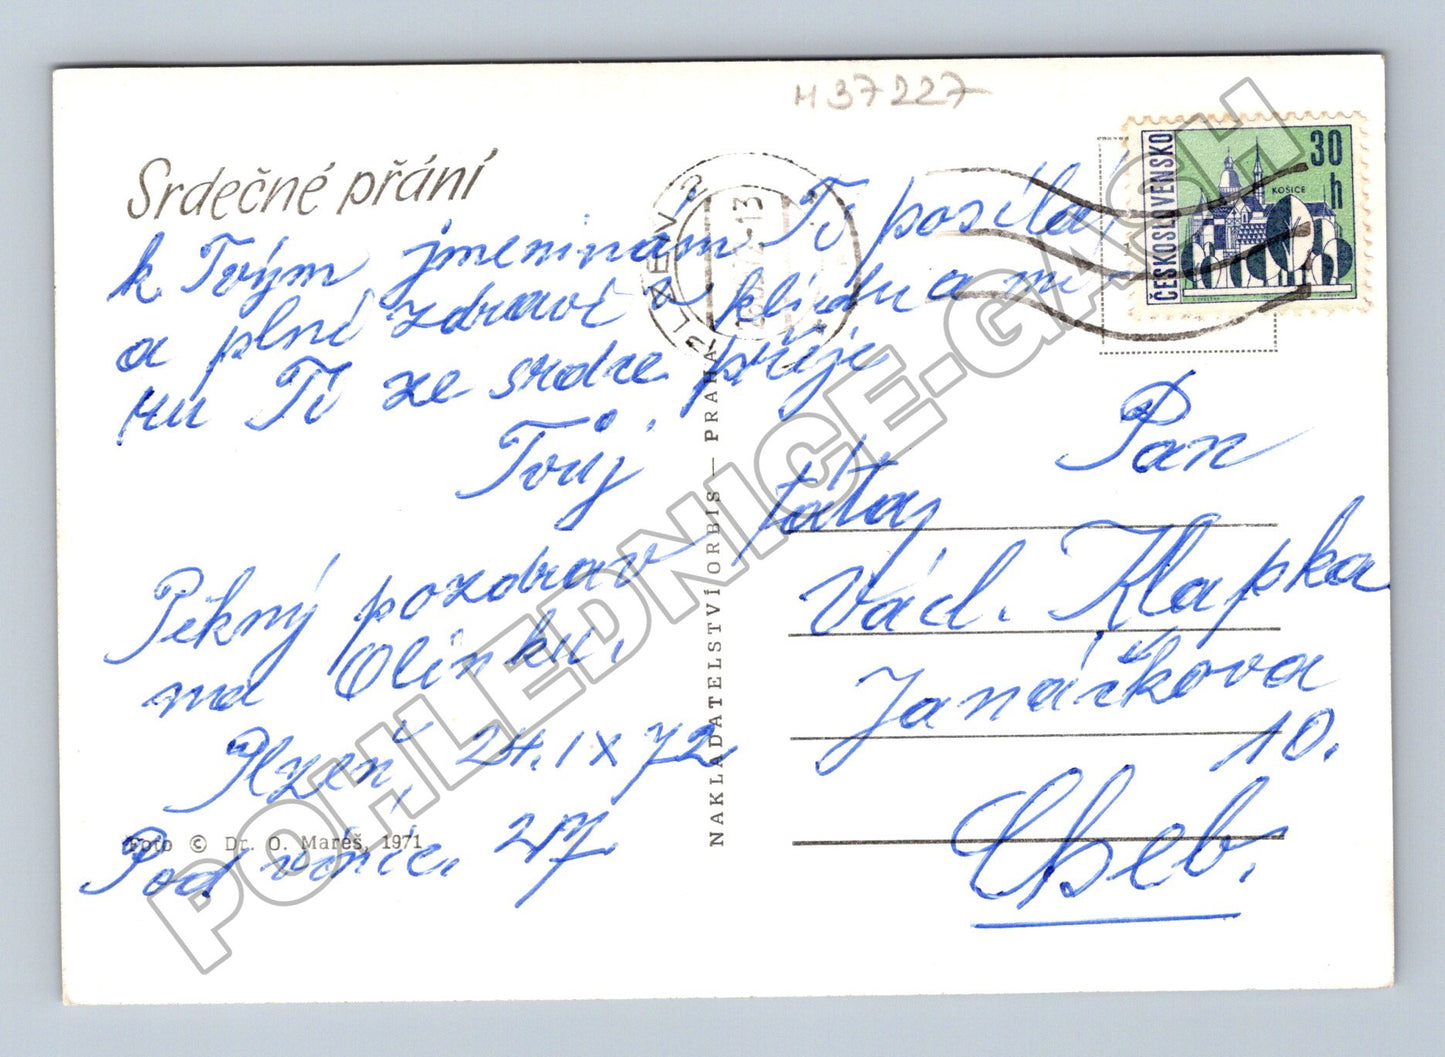 H 37227
Srdečné přání
k Tvým jmeninám Ti posílá,
a plné zdraví a klidu a mí-
ru Ti ze srdce přeje
Tvůj tata,
Pěkný pozdrav
na Olinku.
Plzeň 24. IX 72
Pod vinic. 27.
Foto © Dr. O. Mareš, 1971
NAKLADATELSTVÍ ORBIS — PRAHA
PLZEŇ 2
-13
ČESKOSLOVENSKO
30 h
KOŠICE
Pan
Václ. Klapka
Janáčkova
10.
Cheb.
POHLEDNICE-GASH